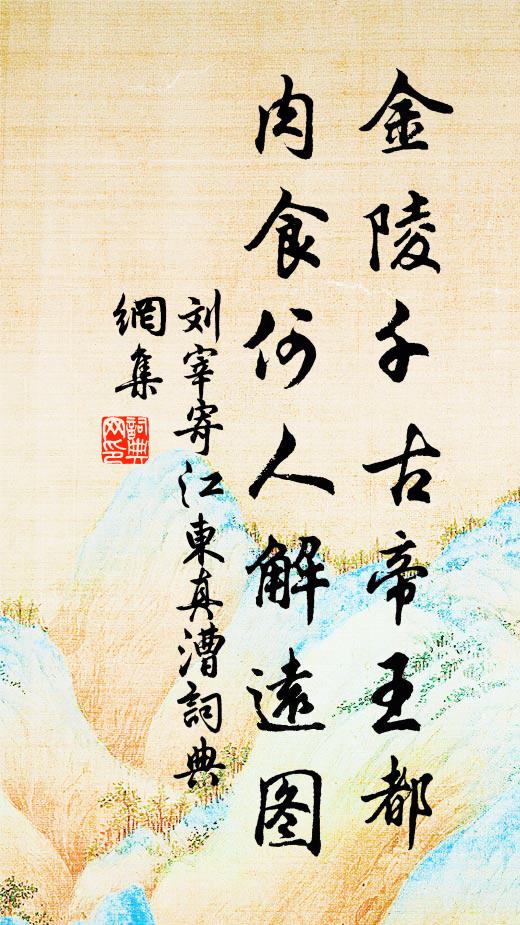 金陵千古帝王都
肉食何人解遠图
刘宰寄江東真漕詞典
網集
詞典
网印